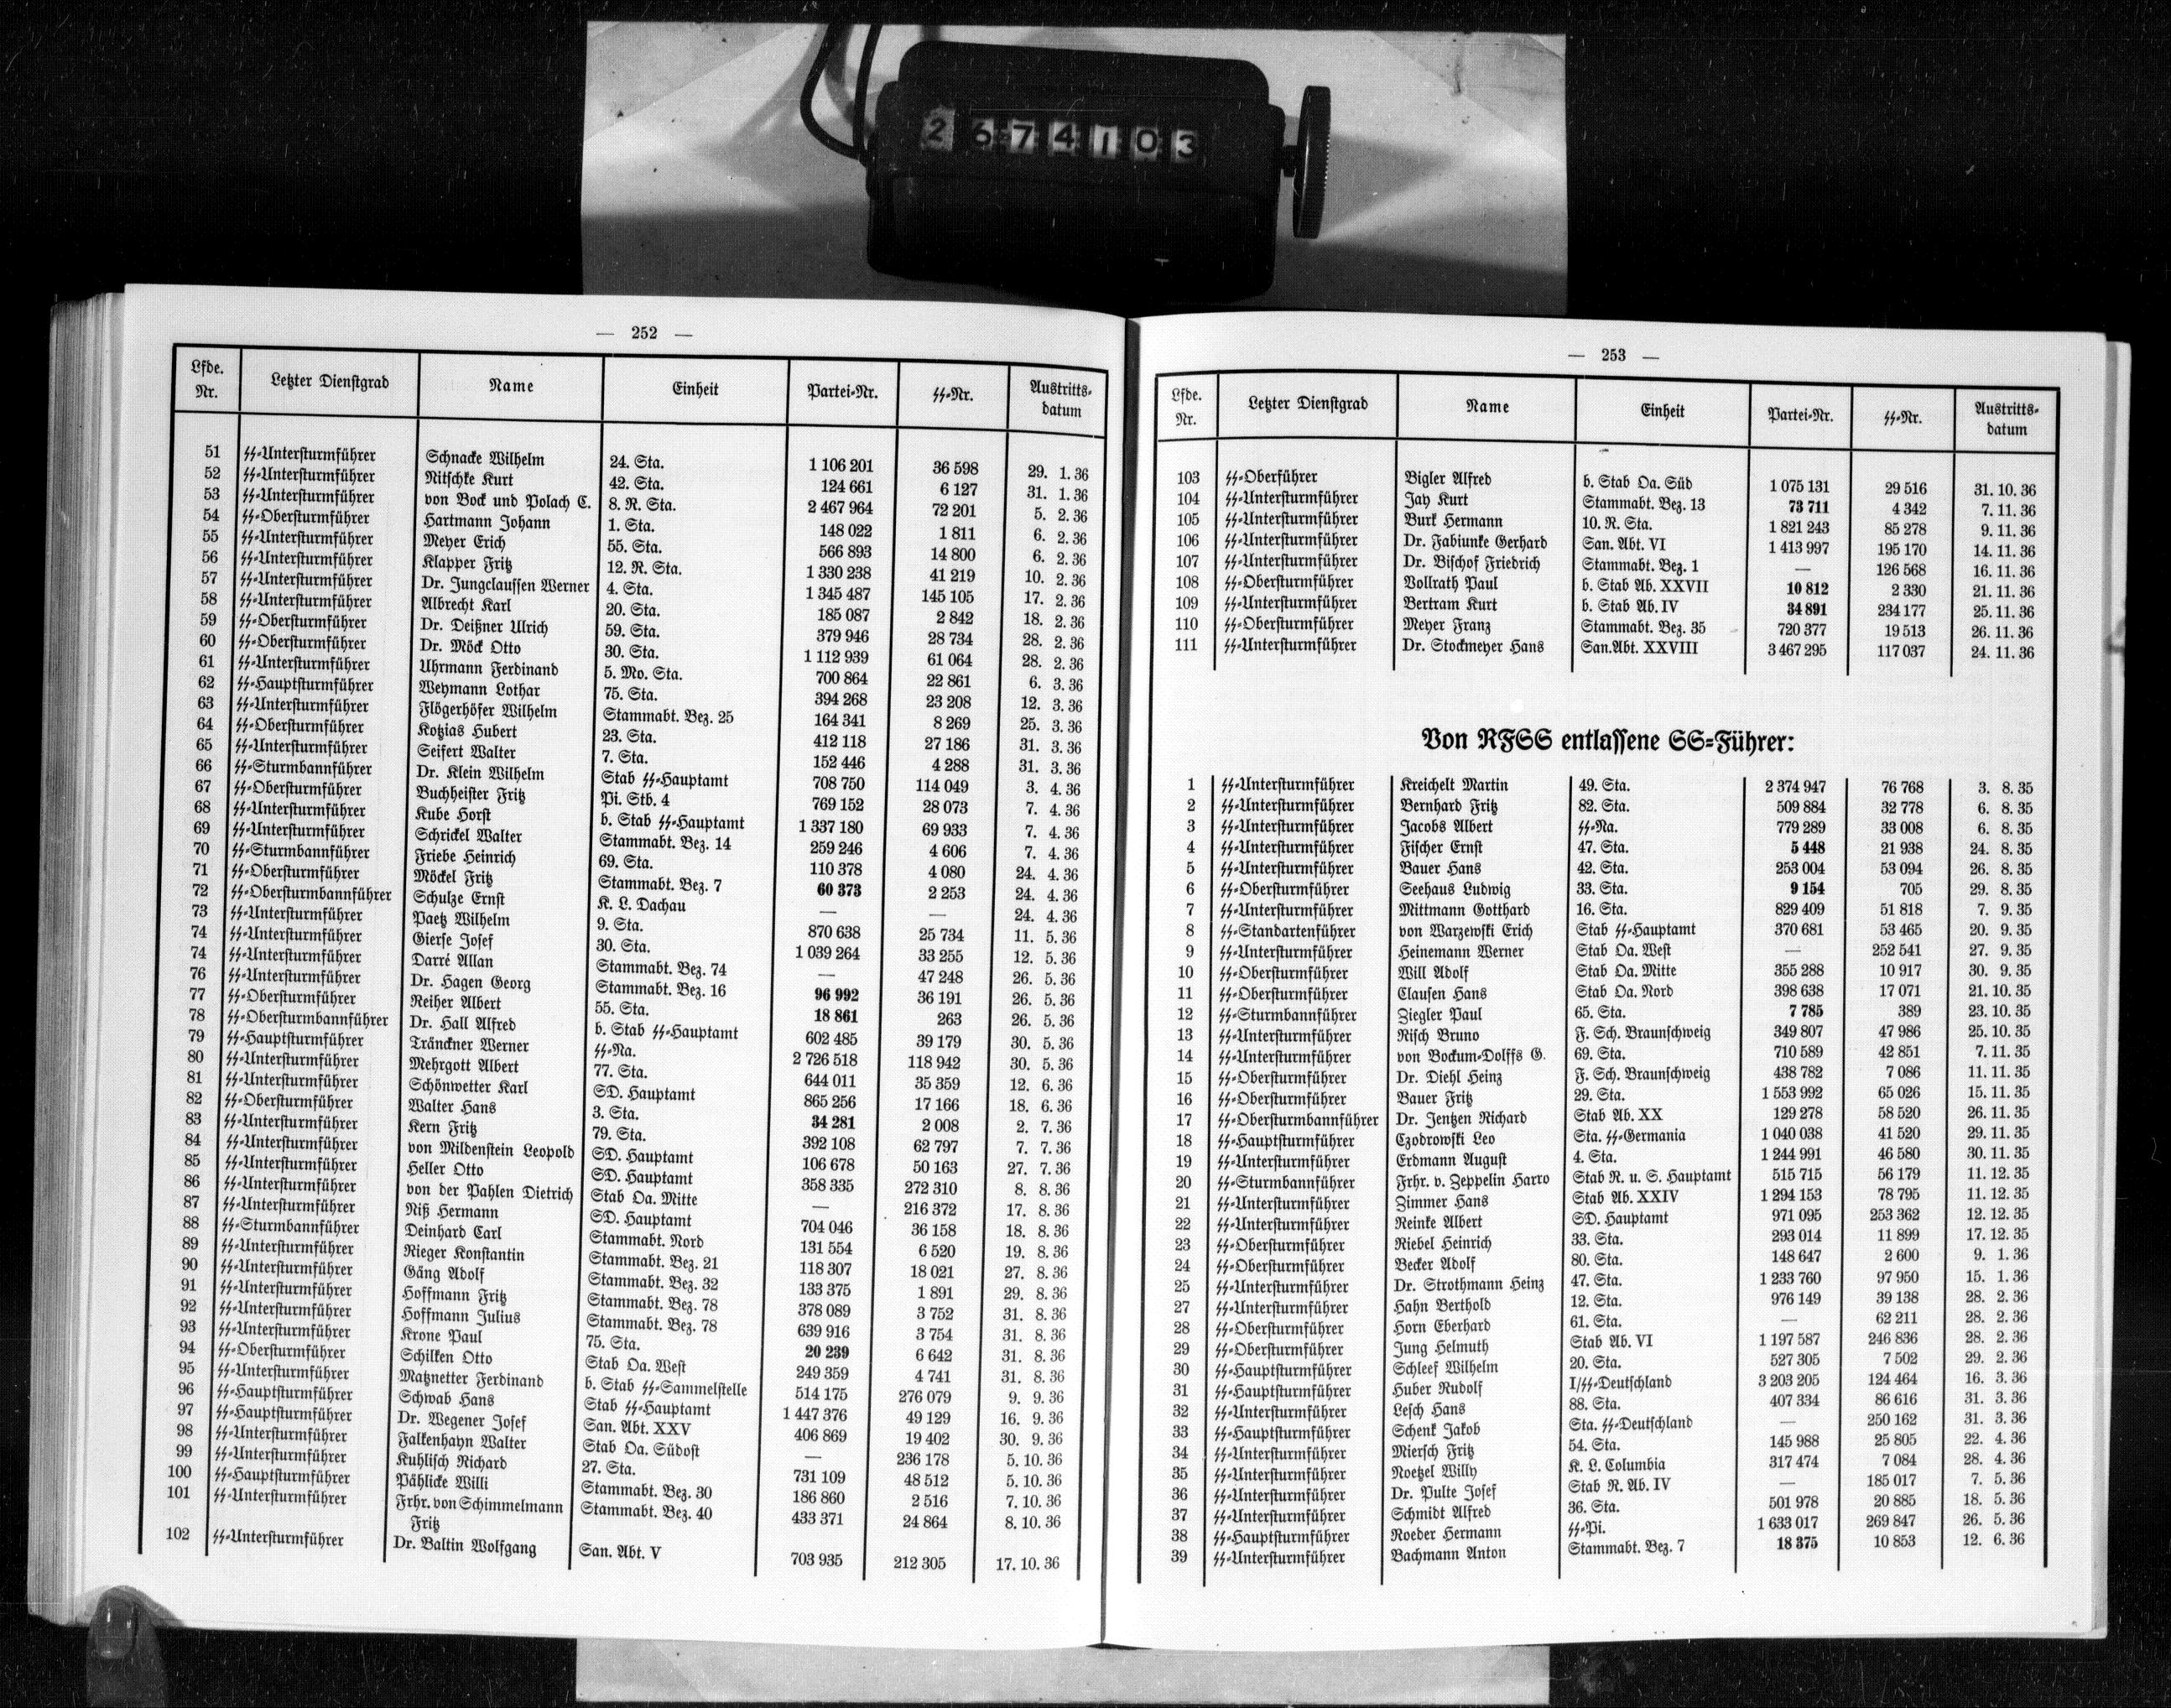 2674103
— 252 —
Lfde. Nr. Letzter Dienstgrad Name Einheit Partei-Nr. SS-Nr. Austritts-datum
51 SS-Untersturmführer Schnacke Wilhelm 24. Sta. 1 106 201 36 598 29. 1. 36
52 SS-Untersturmführer Nitschke Kurt 42. Sta. 124 661 6 127 31. 1. 36
53 SS-Untersturmführer von Bock und Polach C. 8. R. Sta. 2 467 964 72 201 5. 2. 36
54 SS-Obersturmführer Hartmann Johann 1. Sta. 148 022 1 811 6. 2. 36
55 SS-Untersturmführer Meyer Erich 55. Sta. 566 893 14 800 6. 2. 36
56 SS-Untersturmführer Klapper Fritz 12. R. Sta. 1 330 238 41 219 10. 2. 36
57 SS-Untersturmführer Dr. Jungclaussen Werner 4. Sta. 1 345 487 145 105 17. 2. 36
58 SS-Untersturmführer Albrecht Karl 20. Sta. 185 087 2 842 18. 2. 36
59 SS-Obersturmführer Dr. Deißner Ulrich 59. Sta. 379 946 28 734 28. 2. 36
60 SS-Obersturmführer Dr. Möck Otto 30. Sta. 1 112 939 61 064 28. 2. 36
61 SS-Untersturmführer Uhrmann Ferdinand 5. Mo. Sta. 700 864 22 861 6. 3. 36
62 SS-Hauptsturmführer Weymann Lothar 75. Sta. 394 268 23 208 12. 3. 36
63 SS-Untersturmführer Flögerhöfer Wilhelm Stammabt. Bez. 25 164 341 8 269 25. 3. 36
64 SS-Obersturmführer Kotzias Hubert 23. Sta. 412 118 27 186 31. 3. 36
65 SS-Untersturmführer Seifert Walter 7. Sta. 152 446 4 288 31. 3. 36
66 SS-Sturmbannführer Dr. Klein Wilhelm Stab SS-Hauptamt 708 750 114 049 3. 4. 36
67 SS-Obersturmführer Buchheister Fritz Pi. Stb. 4 769 152 28 073 7. 4. 36
68 SS-Untersturmführer Kube Horst b. Stab SS-Hauptamt 1 337 180 69 933 7. 4. 36
69 SS-Untersturmführer Schrickel Walter Stammabt. Bez. 14 259 246 4 606 7. 4. 36
70 SS-Sturmbannführer Friebe Heinrich 69. Sta. 110 378 4 080 24. 4. 36
71 SS-Obersturmführer Möckel Fritz Stammabt. Bez. 7 60 373 2 253 24. 4. 36
72 SS-Obersturmbannführer Schulze Ernst K. L. Dachau — — 24. 4. 36
73 SS-Untersturmführer Paetz Wilhelm 9. Sta. 870 638 25 734 11. 5. 36
74 SS-Untersturmführer Gierse Josef 30. Sta. 1 039 264 33 255 12. 5. 36
74 SS-Untersturmführer Darré Allan Stammabt. Bez. 74 — 47 248 26. 5. 36
76 SS-Untersturmführer Dr. Hagen Georg Stammabt. Bez. 16 96 992 36 191 26. 5. 36
77 SS-Obersturmführer Reiher Albert 55. Sta. 18 861 263 26. 5. 36
78 SS-Obersturmbannführer Dr. Hall Alfred b. Stab SS-Hauptamt 602 485 39 179 30. 5. 36
79 SS-Hauptsturmführer Tränckner Werner SS-Na. 2 726 518 118 942 30. 5. 36
80 SS-Untersturmführer Mehrgott Albert 77. Sta. 644 011 35 359 12. 6. 36
81 SS-Untersturmführer Schönwetter Karl SD. Hauptamt 865 256 17 166 18. 6. 36
82 SS-Obersturmführer Walter Hans 3. Sta. 34 281 2 008 2. 7. 36
83 SS-Untersturmführer Kern Fritz 79. Sta. 392 108 62 797 7. 7. 36
84 SS-Untersturmführer von Mildenstein Leopold SD. Hauptamt 106 678 50 163 27. 7. 36
85 SS-Untersturmführer Heller Otto SD. Hauptamt 358 335 272 310 8. 8. 36
86 SS-Untersturmführer von der Pahlen Dietrich Stab Oa. Mitte — 216 372 17. 8. 36
87 SS-Untersturmführer Niß Hermann SD. Hauptamt 704 046 36 158 18. 8. 36
88 SS-Sturmbannführer Deinhard Carl Stammabt. Nord 131 554 6 520 19. 8. 36
89 SS-Untersturmführer Rieger Konstantin Stammabt. Bez. 21 118 307 18 021 27. 8. 36
90 SS-Untersturmführer Gäng Adolf Stammabt. Bez. 32 133 375 1 891 29. 8. 36
91 SS-Untersturmführer Hoffmann Fritz Stammabt. Bez. 78 378 089 3 752 31. 8. 36
92 SS-Untersturmführer Hoffmann Julius Stammabt. Bez. 78 639 916 3 754 31. 8. 36
93 SS-Untersturmführer Krone Paul 75. Sta. 20 239 6 642 31. 8. 36
94 SS-Obersturmführer Schilken Otto Stab Oa. West 249 359 4 741 31. 8. 36
95 SS-Untersturmführer Matznetter Ferdinand b. Stab SS-Sammelstelle 514 175 276 079 9. 9. 36
96 SS-Hauptsturmführer Schwab Hans Stab SS-Hauptamt 1 447 376 49 129 16. 9. 36
97 SS-Hauptsturmführer Dr. Wegener Josef San. Abt. XXV 406 869 19 402 30. 9. 36
98 SS-Untersturmführer Falkenhayn Walter Stab Oa. Südost — 236 178 5. 10. 36
99 SS-Untersturmführer Kuhlisch Richard 27. Sta. 731 109 48 512 5. 10. 36
100 SS-Hauptsturmführer Pählicke Willi Stammabt. Bez. 30 186 860 2 516 7. 10. 36
101 SS-Untersturmführer Frhr. von Schimmelmann Fritz Stammabt. Bez. 40 433 371 24 864 8. 10. 36
102 SS-Untersturmführer Dr. Baltin Wolfgang San. Abt. V 703 935 212 305 17. 10. 36
— 253 —
Lfde. Nr. Letzter Dienstgrad Name Einheit Partei-Nr. SS-Nr. Austritts-datum
103 SS-Oberführer Bigler Alfred b. Stab Oa. Süd 1 075 131 29 516 31. 10. 36
104 SS-Untersturmführer Jay Kurt Stammabt. Bez. 13 73 711 4 342 7. 11. 36
105 SS-Untersturmführer Burk Hermann 10. R. Sta. 1 821 243 85 278 9. 11. 36
106 SS-Untersturmführer Dr. Fabiunke Gerhard San. Abt. VI 1 413 997 195 170 14. 11. 36
107 SS-Untersturmführer Dr. Bischof Friedrich Stammabt. Bez. 1 — 126 568 16. 11. 36
108 SS-Obersturmführer Vollrath Paul b. Stab Ab. XXVII 10 812 2 330 21. 11. 36
109 SS-Untersturmführer Bertram Kurt b. Stab Ab. IV 34 891 234 177 25. 11. 36
110 SS-Obersturmführer Meyer Franz Stammabt. Bez. 35 720 377 19 513 26. 11. 36
111 SS-Untersturmführer Dr. Stockmeyer Hans San.Abt. XXVIII 3 467 295 117 037 24. 11. 36
Von RFSS entlassene SS-Führer:
1 SS-Untersturmführer Kreichelt Martin 49. Sta. 2 374 947 76 768 3. 8. 35
2 SS-Untersturmführer Bernhard Fritz 82. Sta. 509 884 32 778 6. 8. 35
3 SS-Untersturmführer Jacobs Albert SS-Na. 779 289 33 008 6. 8. 35
4 SS-Untersturmführer Fischer Ernst 47. Sta. 5 448 21 938 24. 8. 35
5 SS-Untersturmführer Bauer Hans 42. Sta. 253 004 53 094 26. 8. 35
6 SS-Obersturmführer Seehaus Ludwig 33. Sta. 9 154 705 29. 8. 35
7 SS-Untersturmführer Mittmann Gotthard 16. Sta. 829 409 51 818 7. 9. 35
8 SS-Standartenführer von Warzewski Erich Stab SS-Hauptamt 370 681 53 465 20. 9. 35
9 SS-Untersturmführer Heinemann Werner Stab Oa. West — 252 541 27. 9. 35
10 SS-Obersturmführer Will Adolf Stab Oa. Mitte 355 288 10 917 30. 9. 35
11 SS-Obersturmführer Clausen Hans Stab Oa. Nord 398 638 17 071 21. 10. 35
12 SS-Sturmbannführer Ziegler Paul 65. Sta. 7 785 389 23. 10. 35
13 SS-Untersturmführer Risch Bruno F. Sch. Braunschweig 349 807 47 986 25. 10. 35
14 SS-Untersturmführer von Bockum-Dolffs G. 69. Sta. 710 589 42 851 7. 11. 35
15 SS-Obersturmführer Dr. Diehl Heinz F. Sch. Braunschweig 438 782 7 086 11. 11. 35
16 SS-Obersturmführer Bauer Fritz 29. Sta. 1 553 992 65 026 15. 11. 35
17 SS-Obersturmbannführer Dr. Jentzen Richard Stab Ab. XX 129 278 58 520 26. 11. 35
18 SS-Hauptsturmführer Czodrowski Leo Sta. SS-Germania 1 040 038 41 520 29. 11. 35
19 SS-Untersturmführer Erdmann August 4. Sta. 1 244 991 46 580 30. 11. 35
20 SS-Sturmbannführer Frhr. v. Zeppelin Harro Stab R. u. S. Hauptamt 515 715 56 179 11. 12. 35
21 SS-Untersturmführer Zimmer Hans Stab Ab. XXIV 1 294 153 78 795 11. 12. 35
22 SS-Untersturmführer Reinke Albert SD. Hauptamt 971 095 253 362 12. 12. 35
23 SS-Obersturmführer Riebel Heinrich 33. Sta. 293 014 11 899 17. 12. 35
24 SS-Obersturmführer Becker Adolf 80. Sta. 148 647 2 600 9. 1. 36
25 SS-Untersturmführer Dr. Strothmann Heinz 47. Sta. 1 233 760 97 950 15. 1. 36
27 SS-Untersturmführer Hahn Berthold 12. Sta. 976 149 39 138 28. 2. 36
28 SS-Obersturmführer Horn Eberhard 61. Sta. — 62 211 28. 2. 36
29 SS-Obersturmführer Jung Helmuth Stab Ab. VI 1 197 587 246 836 28. 2. 36
30 SS-Hauptsturmführer Schleef Wilhelm 20. Sta. 527 305 7 502 29. 2. 36
31 SS-Hauptsturmführer Huber Rudolf I/SS-Deutschland 3 203 205 124 464 16. 3. 36
32 SS-Untersturmführer Lesch Hans 88. Sta. 407 334 86 616 31. 3. 36
33 SS-Hauptsturmführer Schenk Jakob Sta. SS-Deutschland — 250 162 31. 3. 36
34 SS-Untersturmführer Miersch Fritz 54. Sta. 145 988 25 805 22. 4. 36
35 SS-Untersturmführer Noetzel Willy K. L. Columbia 317 474 7 084 28. 4. 36
36 SS-Untersturmführer Dr. Pulte Josef Stab R. Ab. IV — 185 017 7. 5. 36
37 SS-Untersturmführer Schmidt Alfred 36. Sta. 501 978 20 885 18. 5. 36
38 SS-Hauptsturmführer Roeder Hermann SS-Pi. 1 633 017 269 847 26. 5. 36
39 SS-Untersturmführer Bachmann Anton Stammabt. Bez. 7 18 375 10 853 12. 6. 36